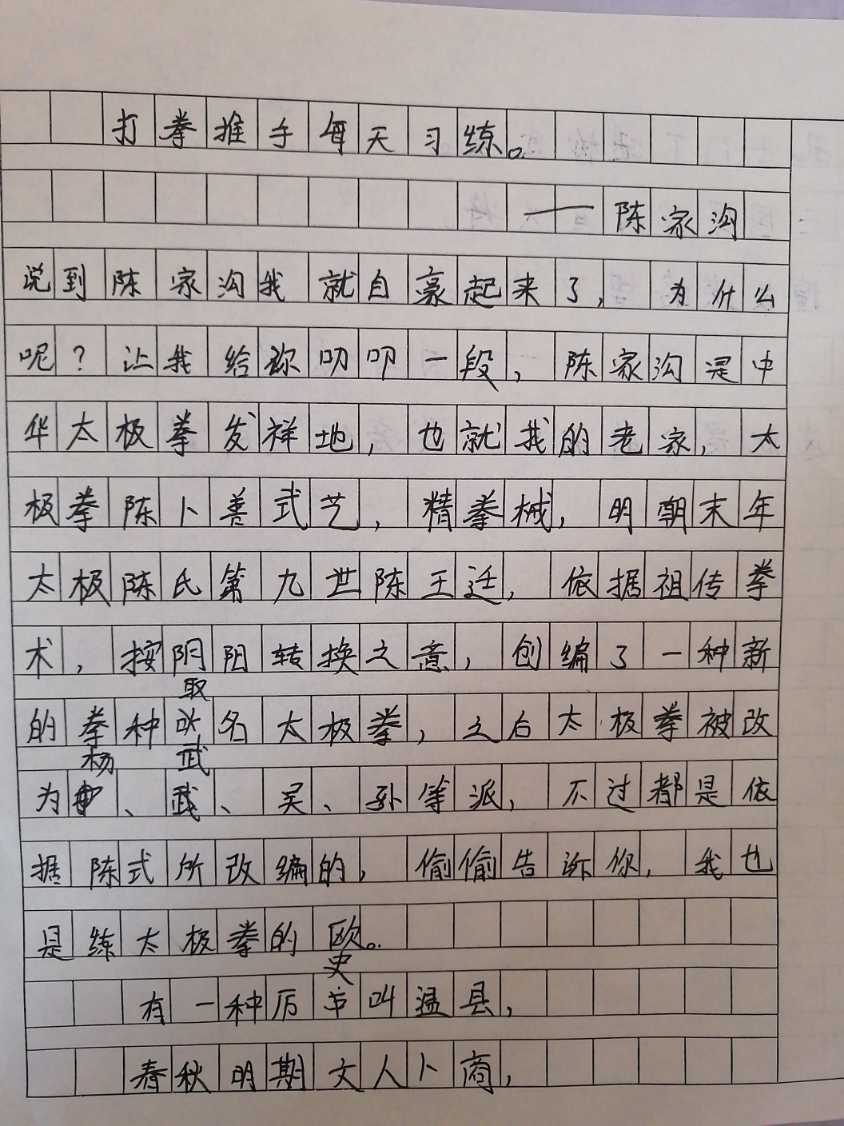 打拳推手每天习练。
——陈家沟
说到陈家沟我就自豪起来了,为什么
呢?让我给你叨叨一段,陈家沟是中
华太极拳发祥地,也就我的老家,太
极拳陈卜善式艺,精拳械,明朝末年
太极陈氏第九世陈王廷,依据祖传拳
术,按阴阳转换之意,创编了一种新
的拳种取名太极拳,之后太极拳被改
为杨、武、吴、孙等派,不过都是依
据陈式所改编的,偷偷告诉你,我也
是练太极拳的欧。
有一种历史叫温县,
春秋明期文人卜商,